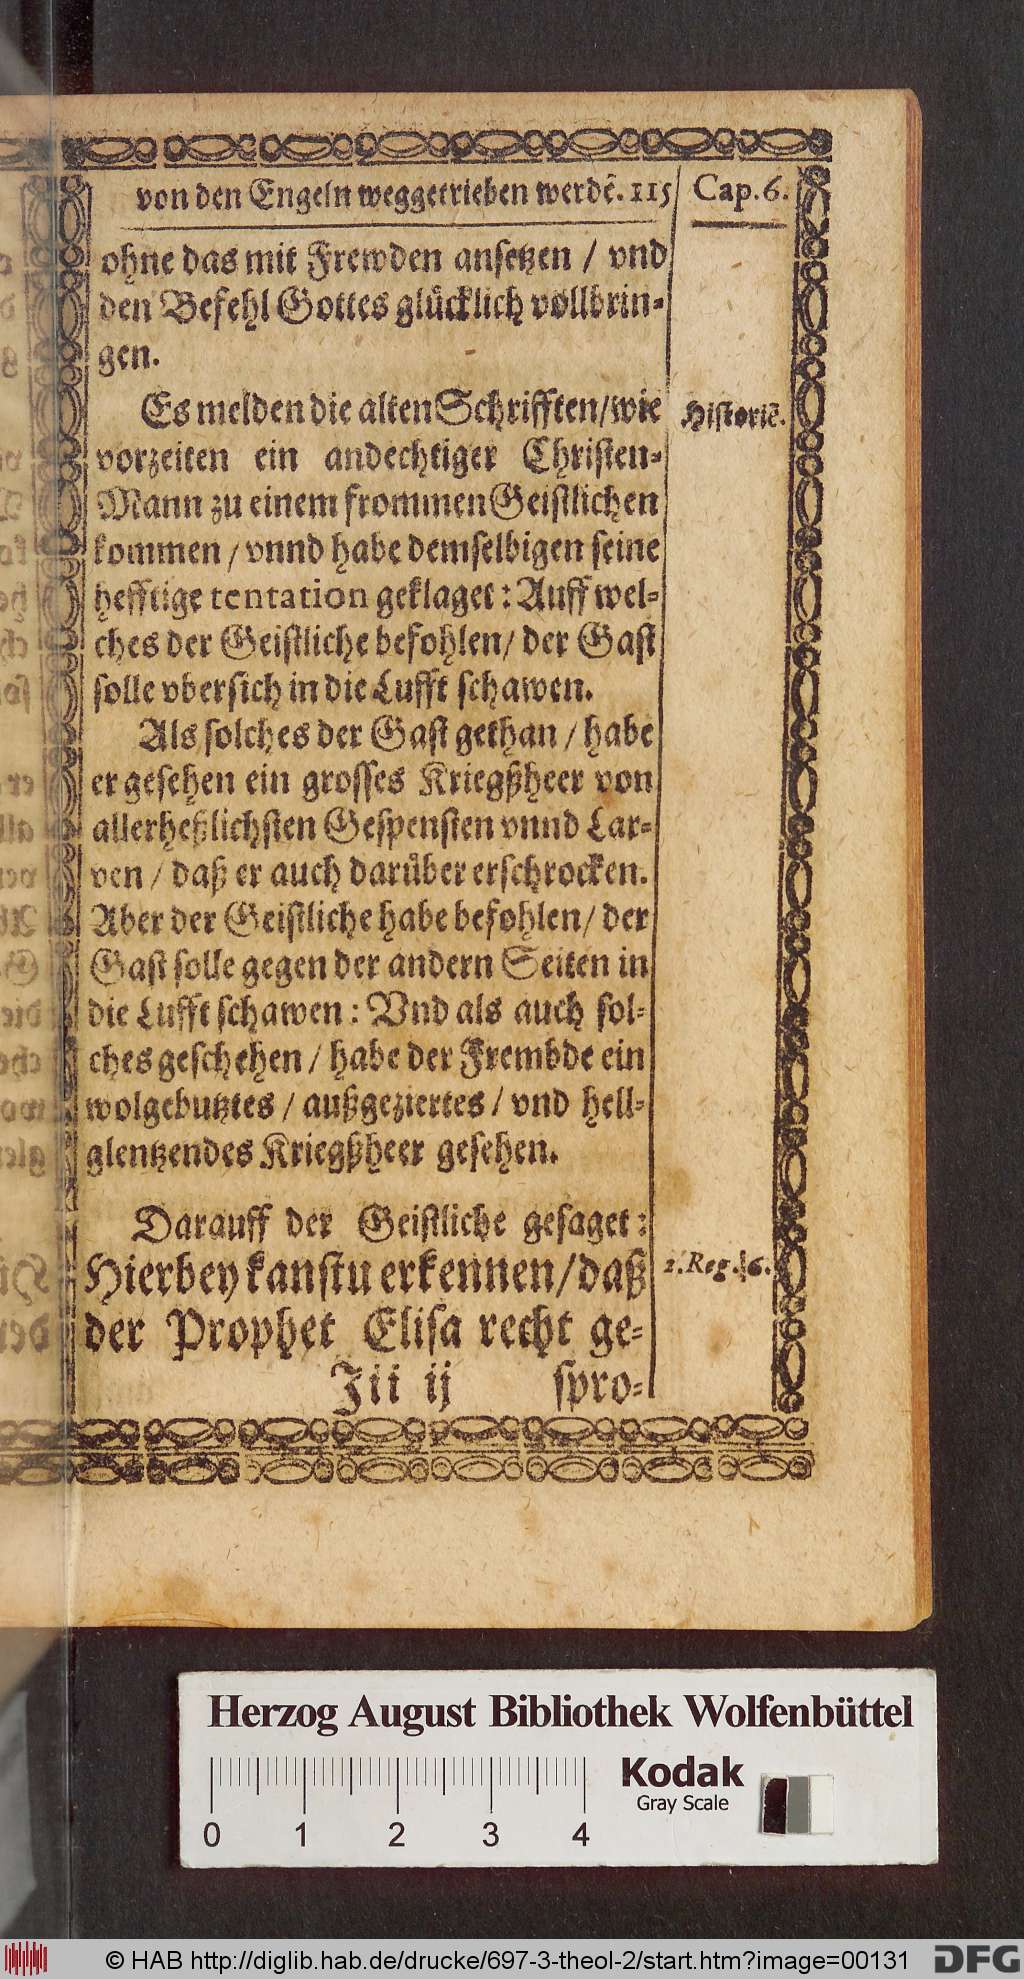 von den Engeln weggetrieben werdē. 115
Cap. 6.
ohne das mit Frewden ansetzen / vnd
den Befehl Gottes glücklich vollbrin-
gen.
Es melden die alten Schrifften / wie
Historiē.
vorzeiten ein andechtiger Christen-
Mann zu einem frommen Geistlichen
kommen / vnnd habe demselbigen seine
hefftige tentation geklaget: Auff wel-
ches der Geistliche befohlen / der Gast
solle vbersich in die Lufft schawen.
Als solches der Gast gethan / habe
er gesehen ein grosses Kriegßheer von
allerheßlichsten Gespensten vnnd Lar-
ven / daß er auch darüber erschrocken.
Aber der Geistliche habe befohlen / der
Gast solle gegen der andern Seiten in
die Lufft schawen: Vnd als auch sol-
ches geschehen / habe der Frembde ein
wolgebutztes / außgeziertes / vnd hell-
glentzendes Kriegßheer gesehen.
Darauff der Geistliche gesaget:
Hierbey kanstu erkennen / daß
2. Reg. 6.
der Prophet Elisa recht ge-
Iii ij
spro-
Herzog August Bibliothek Wolfenbüttel
Kodak
Gray Scale
0 1 2 3 4
© HAB http://diglib.hab.de/drucke/697-3-theol-2/start.htm?image=00131
DFG